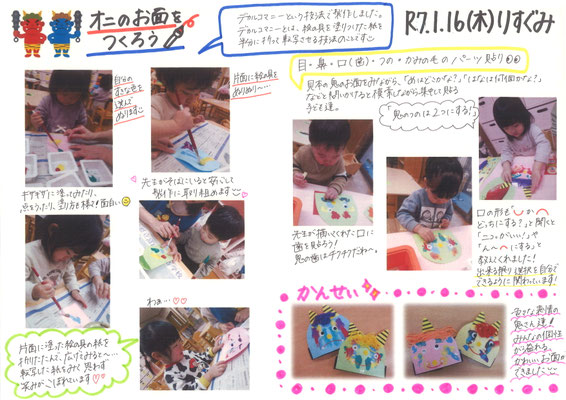 オニのお面を
つくろう
デカルコマニーという技法で製作しました。
デカルコマニーとは、絵の具を塗りつけた紙を
半分に折って転写させる技法のことです
R7.1.16(木)りすぐみ
目・鼻・口(歯)・つの・かみの毛のパーツ貼り
見本の鬼のお面をみながら、「めはどこかな?」「はなは何個かな?」
などと問いかけると
子ども達。
「鬼のつのは2つにする!」
自分の
すきな色を
選んで
ぬります
片面に絵の具を
ぬりぬり〜…
ギザギザに塗ってみたり、
点をうったり、塗り方も様々で面白い
先生がそばにいると安心して
製作に取り組めます
先生が描いてくれた口に
歯を貼ろう!
鬼の歯はチクチクだね〜。
口の形が
どっちにする?」と聞くと
「ニコッがいい!」や
「ん〜 にする」と
教えてくれました!
出来る限り選択を自分で
できるように関わっています!
わぁ…♡♡
片面に塗った絵の具の紙を
折りたたんで、なでてみると〜…
転写した紙をみて思わず
笑みがこぼれています♡♡
かんせい
色々な表情の
鬼さん達!
みんなの個性
から溢れる、
かわいいお面が
できました